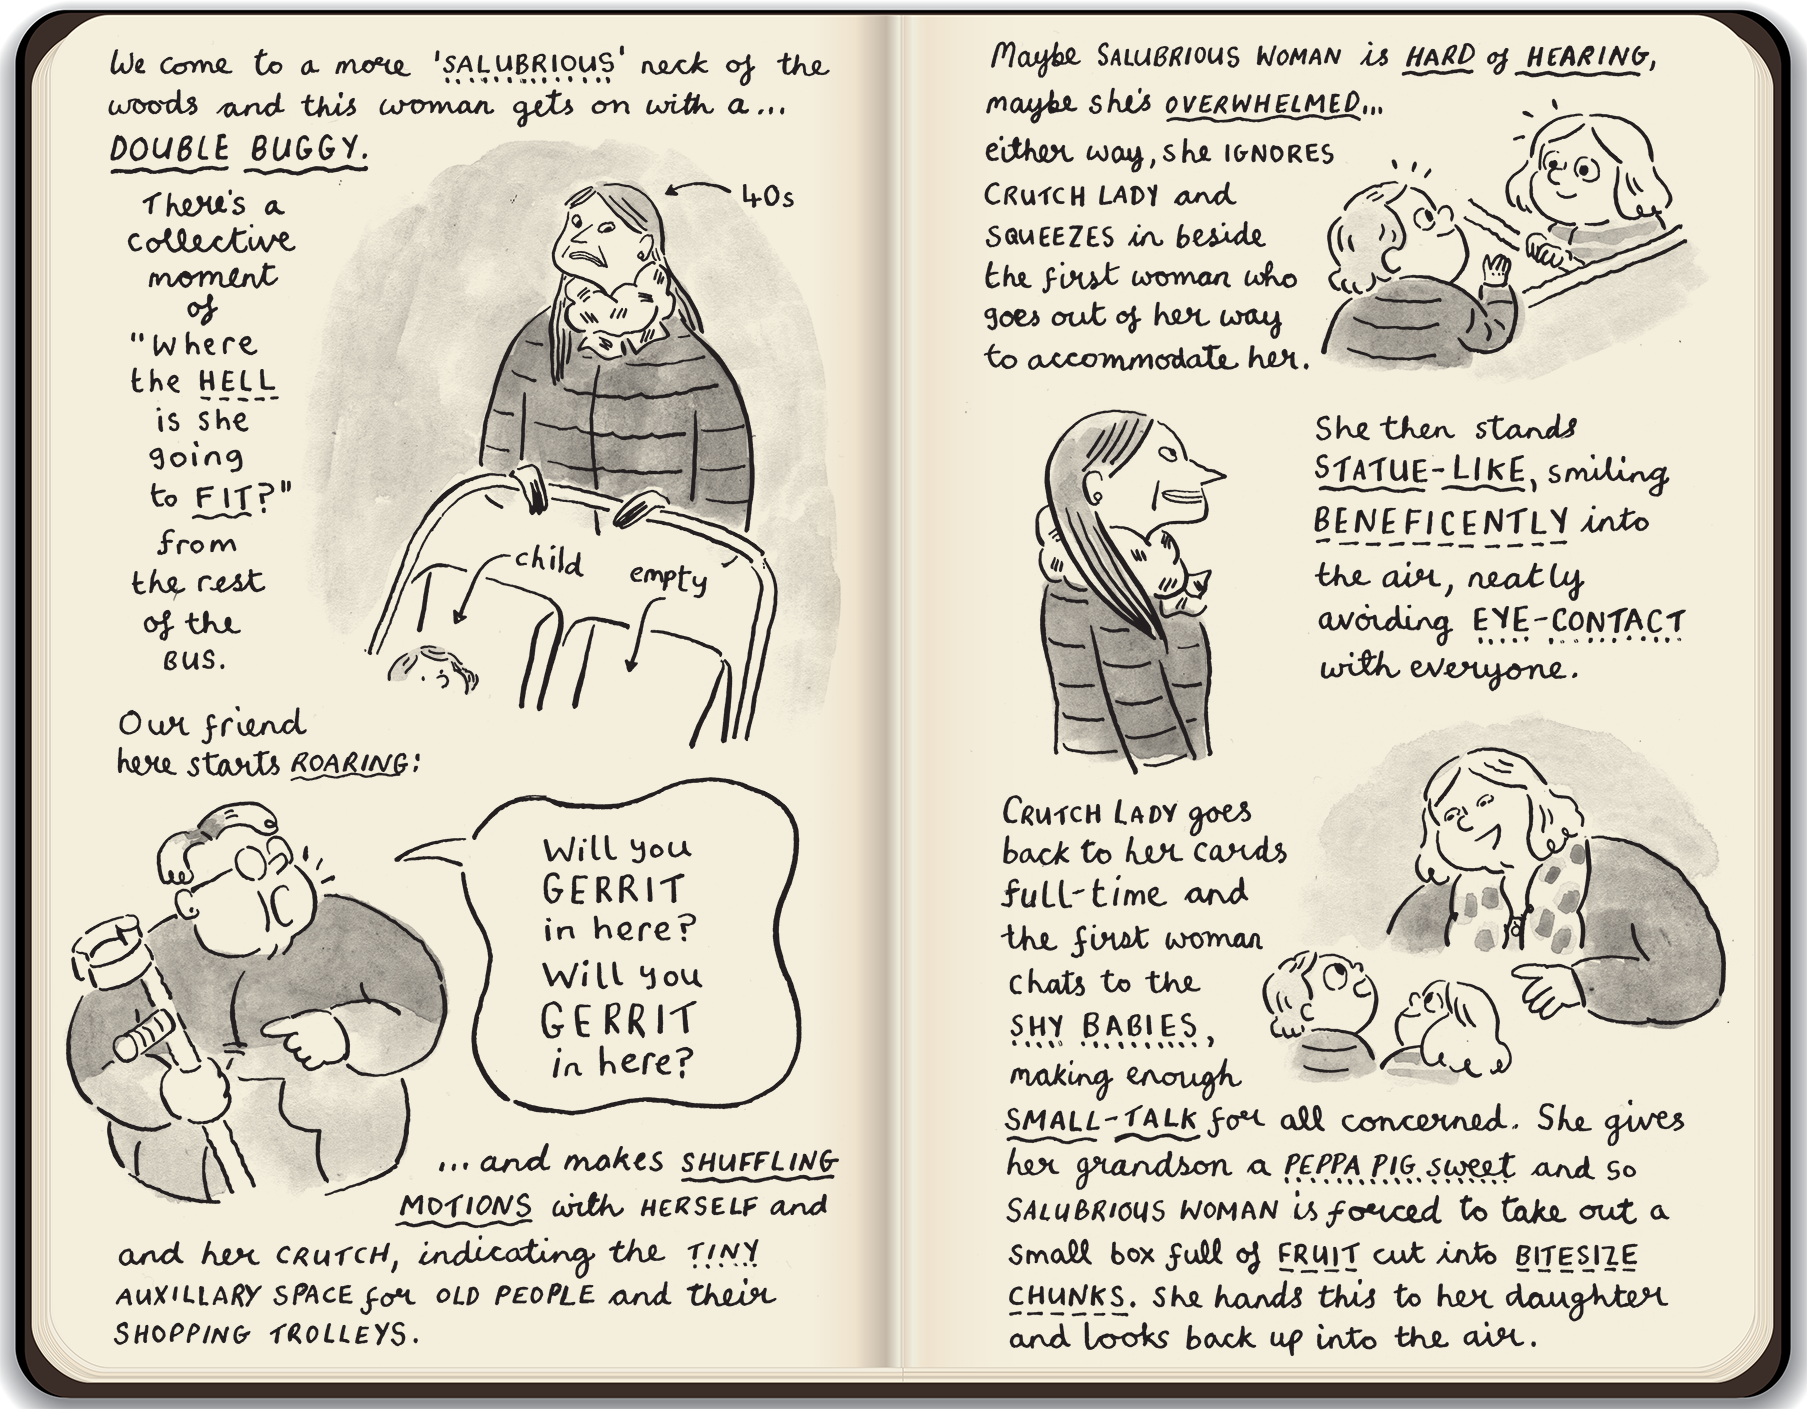 We come to a more 'SALUBRIOUS' neck of the
woods and this woman gets on with a...
DOUBLE BUGGY.
There's a
collective
moment
of
"Where
the HELL
is she
going
to FIT?"
from
the rest
of the
BUS.
40s
child
empty
Our friend
here starts ROARING:
Will you
GERRIT
in here?
Will you
GERRIT
in here?
...and makes SHUFFLING
MOTIONS with HERSELF and
and her CRUTCH, indicating the TINY
AUXILLARY SPACE for OLD PEOPLE and their
SHOPPING TROLLEYS.
Maybe SALUBRIOUS WOMAN is HARD of HEARING,
maybe she's OVERWHELMED...
either way, she IGNORES
CRUTCH LADY and
SQUEEZES in beside
the first woman who
goes out of her way
to accommodate her.
She then stands
STATUE-LIKE, smiling
BENEFICENTLY into
the air, neatly
avoiding EYE-CONTACT
with everyone.
CRUTCH LADY goes
back to her cards
full-time and
the first woman
chats to the
SHY BABIES,
making enough
SMALL-TALK for all concerned. She gives
her grandson a PEPPA PIG sweet and so
SALUBRIOUS WOMAN is forced to take out a
small box full of FRUIT cut into BITESIZE
CHUNKS. She hands this to her daughter
and looks back up into the air.